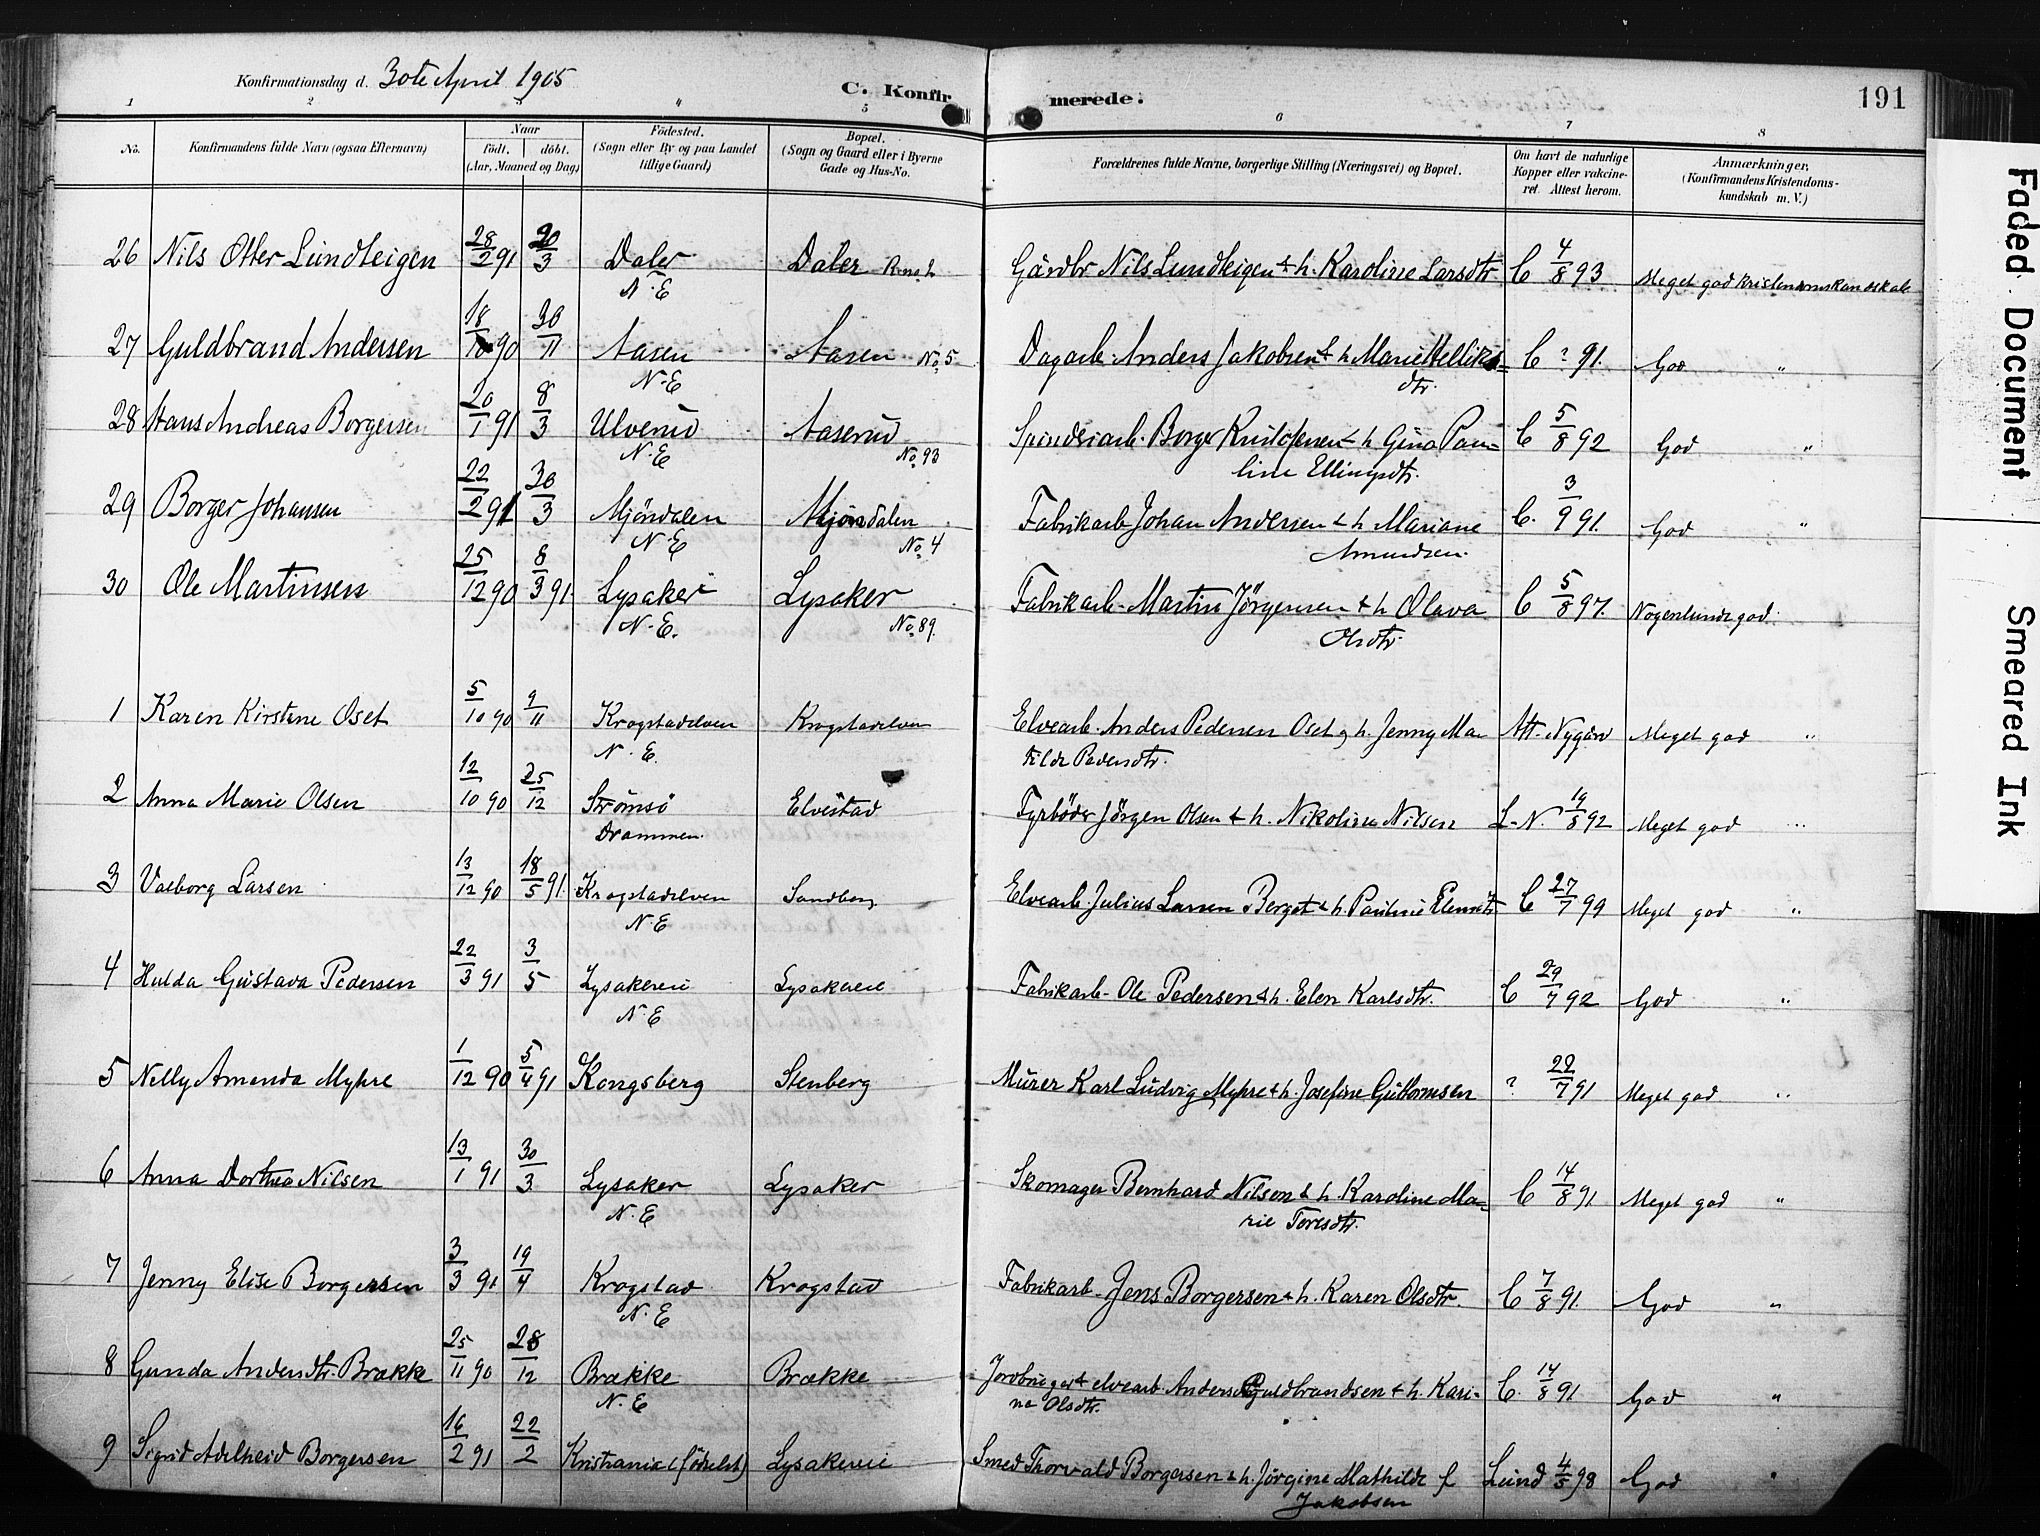 Konfirmationsdag d. 30te April 1905
C. Konfir
merede.
191
1 2 " " 5 6 7 8
No. Konfirmandens fulde Navn (ogsaa Efternavn) Naar født. døbt. (Aar, Maaned og Dag) Fødested. (Sogn eller By og paa Landet tillige Gaard) Bopæl. (Sogn og Gaard eller i Byerne Gade og Hus-No. Forældrenes fulde Navne, borgerlige Stilling (Næringsvei) og Bopæl. Om havt de naturlige Kopper eller vakcineret. Attest herom. Anmærkninger, (Konfirmandens Kristendomskundskab m. V.)
26 Nils Otter Lundteigen 28/2 91 20/3 Daler N. E Daler Gårdbr Nils Lundteigen & h. Karoline Larsdtr C 4/8 93 Meget god kristendomskundskab
27 Guldbrand Andersen 18/10 90 30/11 Aasen N. E Aasen No. 5 Dagarb. Anders Jakobsen & h Marie Helliksdtr. C ? 91. God "
28 Hans Andreas Borgersen 20/1 91 8/3 Ulverud N. E Aaserud No. 93 Spinderiarb. Borger Kristofersen & h Gina Pauline Ellingsdtr. C 5/8 92 God "
29 Borger Johansen 22/2 91 30/3 Mjöndalen N. E Mjöndalen No. 4 Fabrikarb Johan Andersen & h Mariane Amundsen. C. 3/9 91. God "
30 Ole Martinsen 25/12 90 8/3 91 Lysaker N. E. Lysaker No. 89. Fabrikarb. Martin Jörgensen & h Olava Olsdtr C 5/8 97. Nogenlunde god
1 Karen Kirstine Oset 5/10 90 9/11 Krogstadelven N. E. Krogstadelven Elvearb. Anders Pedersen Oset og h. Jenny Matilde Pedersdtr. Att. Nygård Meget god "
2 Anna Marie Olsen 12/10 90 25/12 Strömsö Drammen. Elvestad Fyrböder Jörgen Olsen & h. Nikoline Nilsen L. N. 19/8 92 Meget god "
3 Valborg Larsen 13/12 90 18/5 91. Krogstadelven N E Sandberg Elvearb. Julius Larsen Berget & h. Pauline C 27/7 99 Meget god "
4 Hulda Gustava Pedersen 22/3 91 3/5 Lysakereie N. E Lysakereie Fabrikarb. Ole Pedersen & h. Elen Karlsdtr. C 29/7 92 God "
5 Nelly Amanda Myhre 1/12 90 5/4 91 Kongsberg Stenberg Murer Karl Ludvig Myhre & h. Josefine Guttormsen ? 22/7 91 Meget god "
6 Anna Dorthea Nilsen 13/1 91 30/3 Lysaker N. E Lysaker Skomager Bernhard Nilsen & h Karoline Marie Toresdtr. C 14/8 91 Meget god "
7 Jenny Elise Borgersen 3/3 91 19/4 Krogstad N. E Krogstad Fabrikarb. Jens Borgersen & h. Karen Olsdtr. C 7/8 91. God "
8 Gunda Andersdtr. Brække 25/11 90 28/12 Brække N. E Brække Jordbruger & elvearb. Anders Guldbrandsen & h. Karina Olsdtr. C. 14/8 91 God "
9 Sigrid Adelheid Borgersen 16/2 91 22/2 Kristiania (födselst) Lysakereie Smed Thorvald Borgersen & h. Jörgine Mathilde f Jakobsen Lund 4/5 98 God "
Faded Document
Smeared Ink